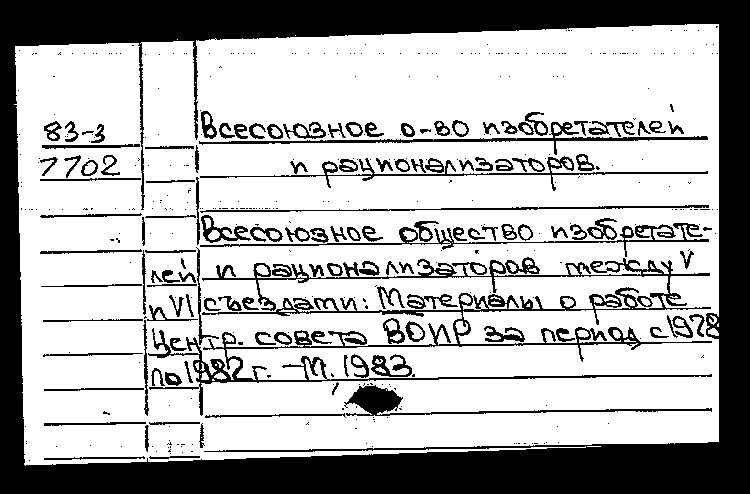 83-3 Всесоюзное о-во изобретателей
7702 и рационализаторов.
Всесоюзное общество изобретате-
лей и рационализаторов между V
и VI съездами: Материалы о работе
Центр. совета ВОИР за период с 1978
по 1982 г. -М. 1983.